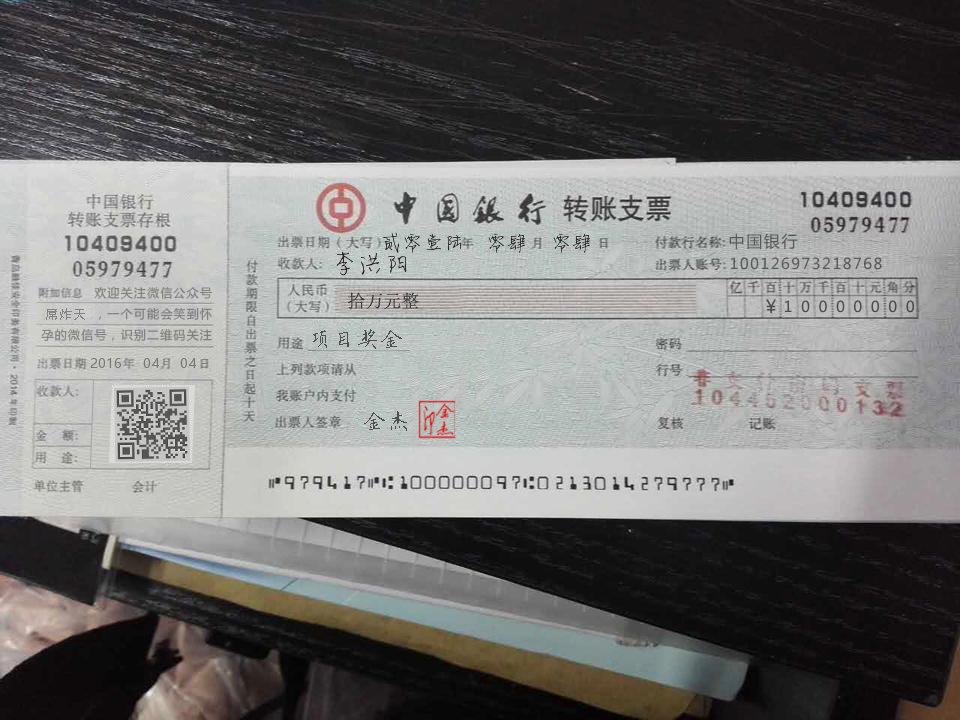 中国银行
转账支票存根
10409400
05979477
附加信息 欢迎关注微信公众号
屌炸天 ,一个可能会笑到怀
孕的微信号,识别二维码关注
出票日期 2016年 04月 04日
收款人:
金 额:
用 途:
单位主管 会计
中国银行 转账支票
10409400
05979477
出票日期(大写)贰零壹陆年 零肆月 零肆日
付款行名称:中国银行
收款人: 李洪阳
出票人账号:100126973218768
人民币
(大写) 拾万元整
亿千百十万千百十元角分
¥100000000
用途 项目奖金
密码
上列款项请从
行号
我账户内支付
104452000132
出票人签章 金杰
金杰印
复核 记账
付款期限自出票之日起十天
⑈979417⑈⑆100000097⑆02130142797777⑈